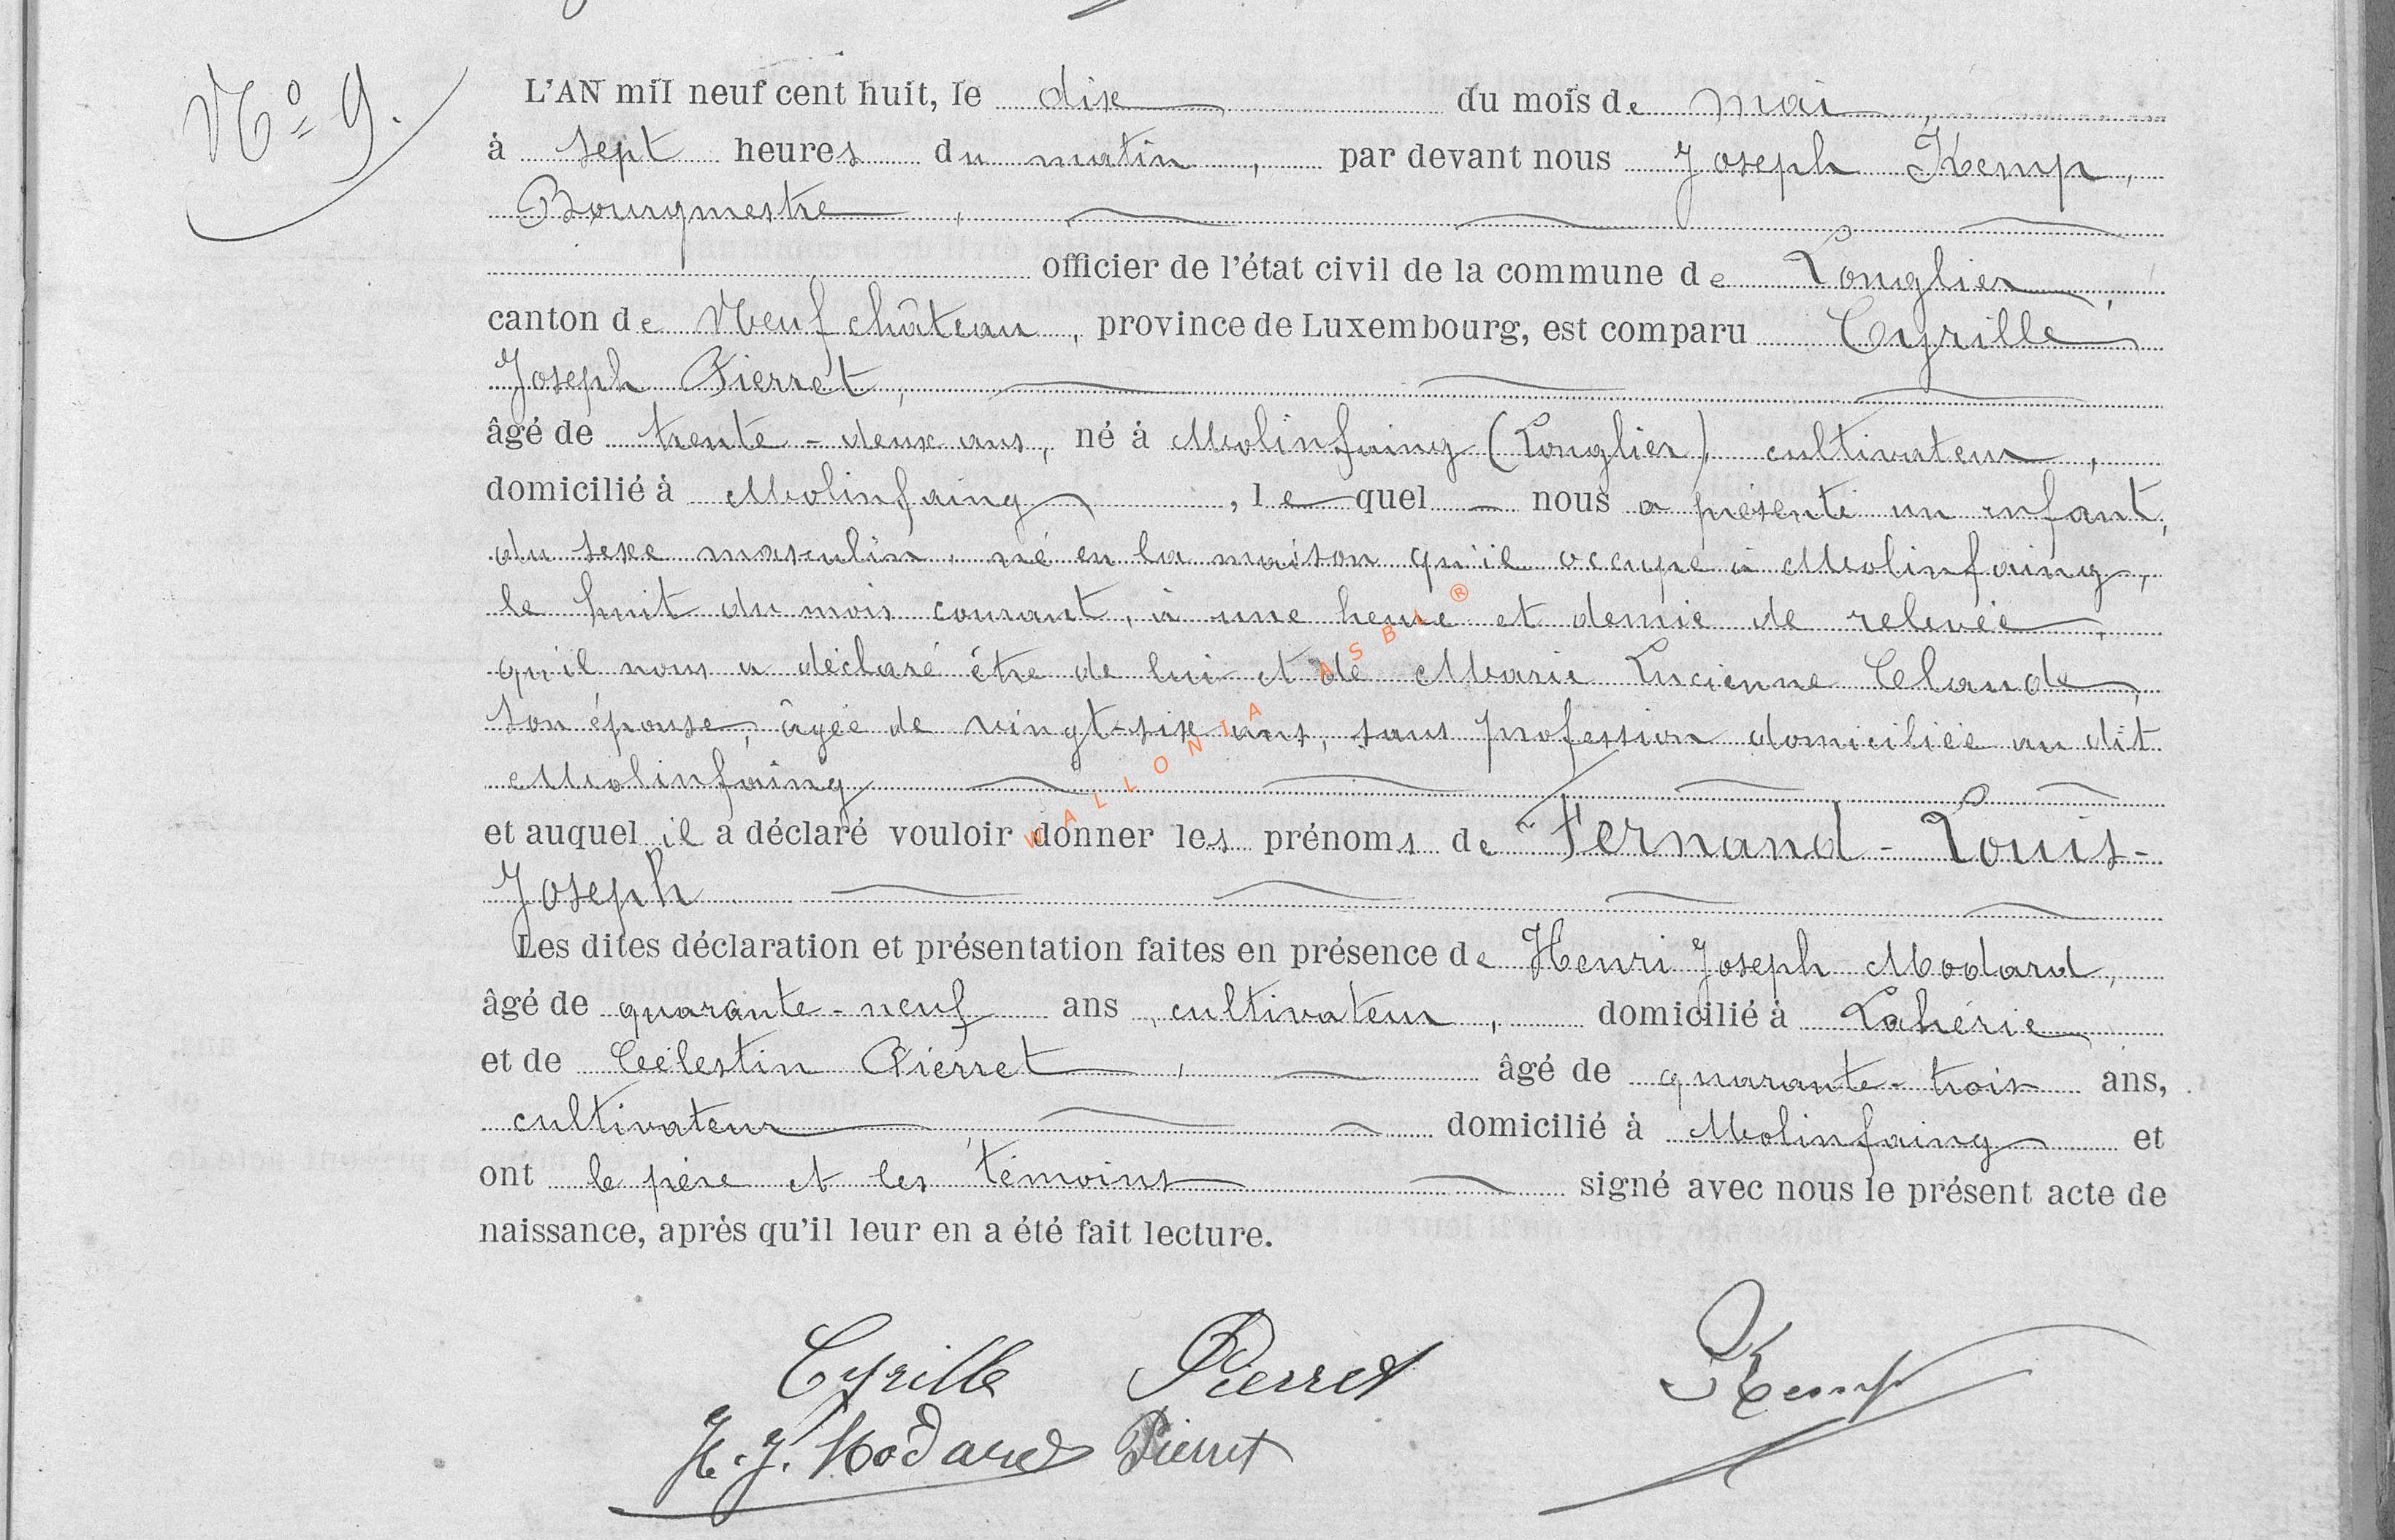 N° 9.
L'AN mil neuf cent huit, le dix du mois de mai,
à sept heures du matin, par devant nous Joseph Kemp,
Bourgmestre,
officier de l'état civil de la commune de Longlier,
canton de Neufchâteau, province de Luxembourg, est comparu Cyrille
Joseph Pierret,
âgé de trente-deux ans, né à Molinfaing (Longlier) cultivateur,
domicilié à Molinfaing, lequel nous a présenté un enfant,
du sexe masculin, né en la maison qu'il occupe à Molinfaing,
le huit du mois courant, à une heure et demie de relevée,
qu'il nous a déclaré être de lui et de Marie Lucienne Claude,
son épouse, âgée de vingt-six ans, sans profession domiciliée au dit
Molinfaing
et auquel il a déclaré vouloir donner les prénoms de Fernand-Louis-
Joseph
Les dites déclaration et présentation faites en présence de Henri Joseph Modard,
âgé de quarante-neuf ans, cultivateur, domicilié à Lahérie
et de Célestin Pierret, âgé de quarante-trois ans,
cultivateur domicilié à Molinfaing et
ont le père et les témoins signé avec nous le présent acte de
naissance, après qu'il leur en a été fait lecture.
Cyrille Pierret Kemp
H. J. Modard Pierret
WALLONIA ASBL ®